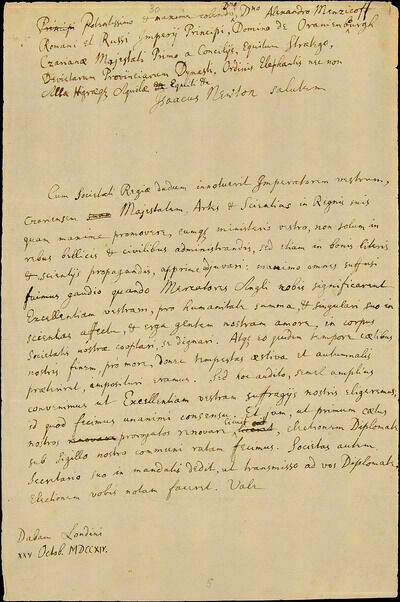 30
Potentissimo & maxime colendo Dno Dno Alexandro Menzicoff
Romani et Russi Imperij Principi, Domino de Oranienburgh
Czarianæ Majestati Primo a Concilijs, Equitum Stratego,
Devictarum Provinciarum Dynasti, Ordinis Elephantis nec non
Aquilæ Equiti &c
Isaacus Newton salutem
Cum Societati Regiæ dudum innotuerit Imperatorem vestrum,
Majestatem, Artes & Scientias in Regnis suis
quam maxime promovere, eumq ministerio vestro, non solum in
rebus bellicis & civilibus administrandis, sed etiam in bonis literis
& scientijs propagandis, apprime adjuvari: maximo omnes suffusi
fuimus gaudio quando Mercatores Angli nobis significarent
Excellentiam vestram, pro humanitate summa, & singulari suo in
scientias affectu, & erga gentem nostram amore, in corpus
Societatis nostræ cooptari, se dignari. Atq eo quidem tempore cœtibus
nostris finem, pro more, donec tempestas æstiva et autumnalis
præteriret, imposituri eramus. Sed hoc audito, semel amplius
convenimus ut Excellentiam vestram suffragijs nostris eligeremus,
id quod fecimus unanimi consensu. Et jam, ut primum cœtus
nostros prorogatos renovare licuit, electionem Diplomate
sub sigillo nostro communi ratam fecimus. Societas autem
Secretario suo in mandatis dedit, ut transmisso ad vos Diplomate,
Electionem vobis notam faceret. Vale
Dabam Londini
xxv Octob. MDCCXIV.
5